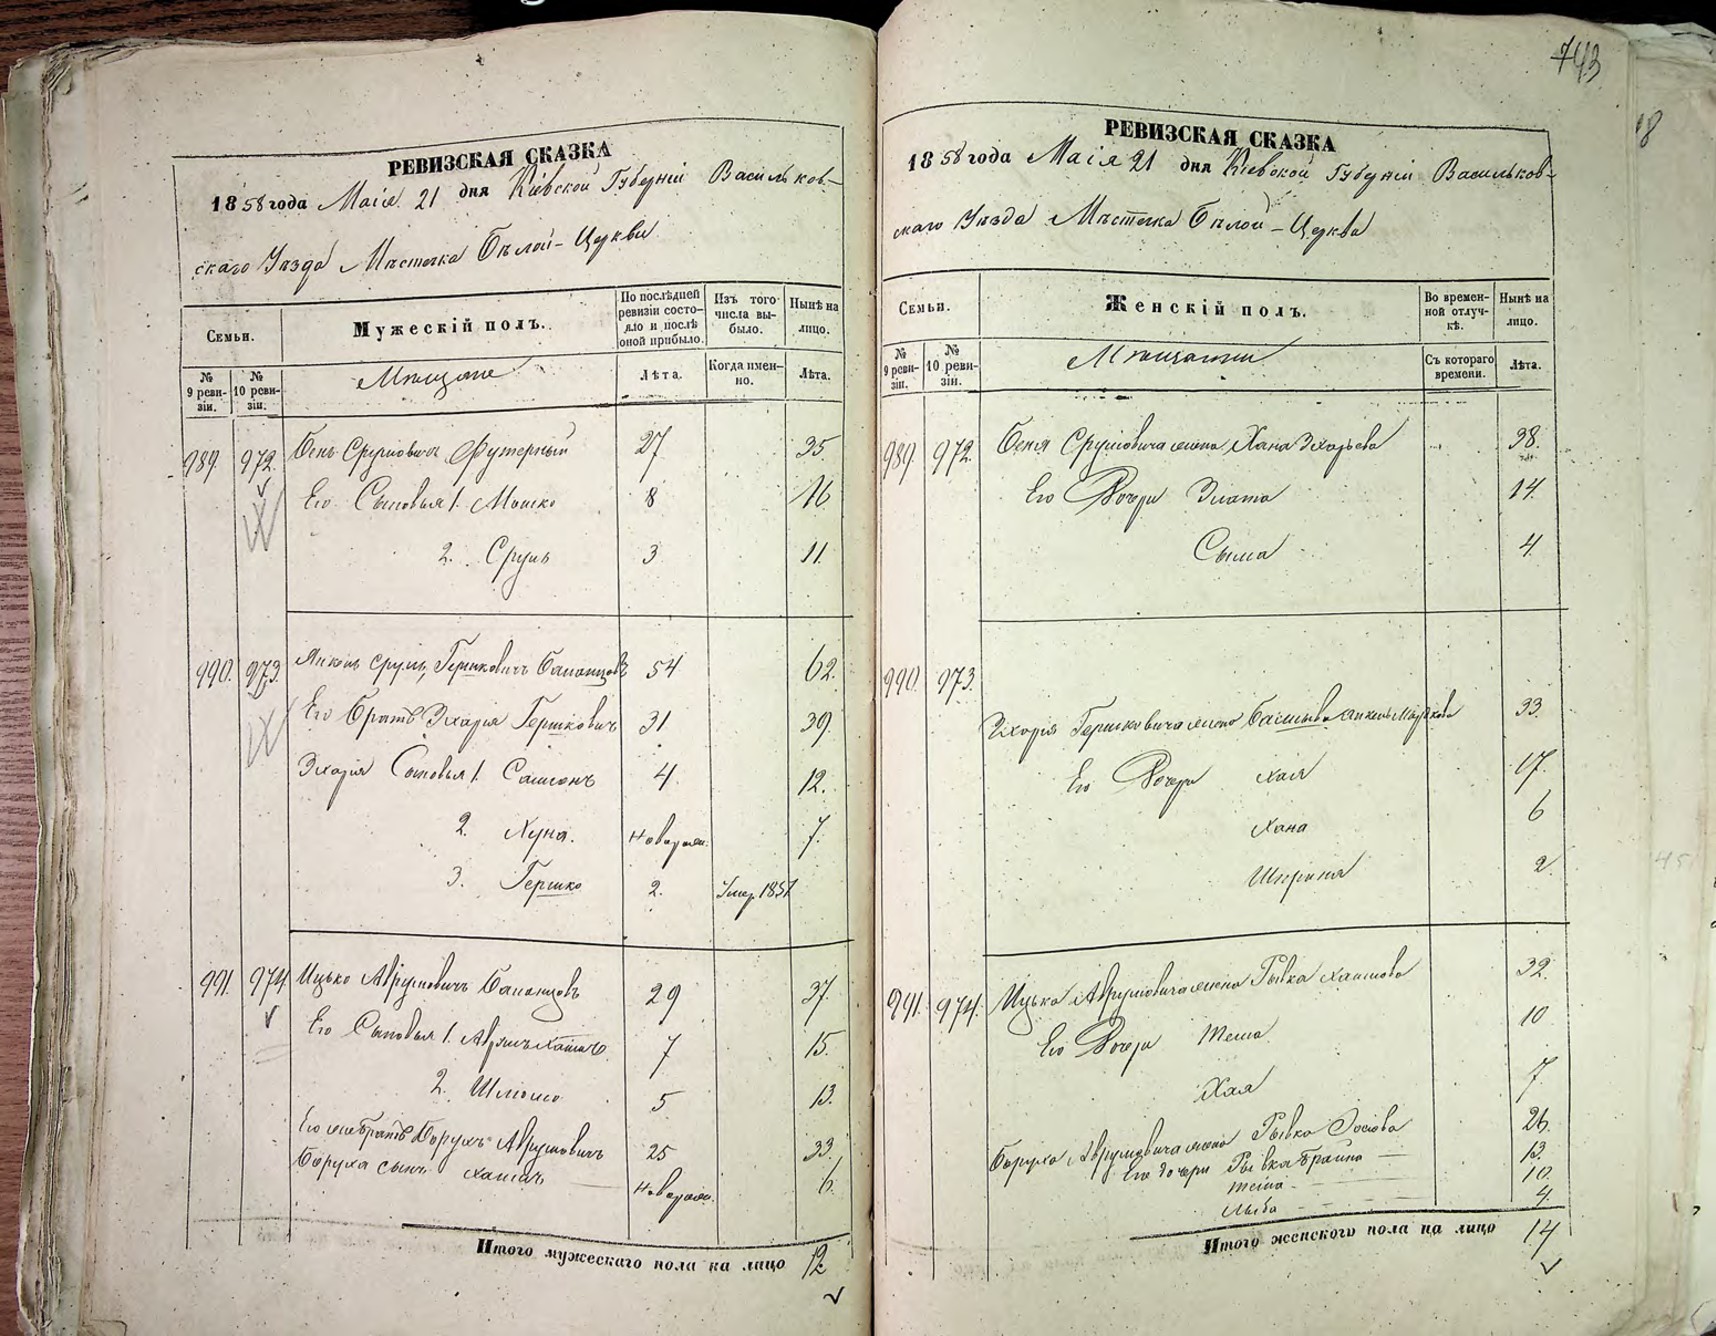 743
18
РЕВИЗСКАЯ СКАЗКА
1858 года Маія 21 дня Кіевской Губерніи Васильков-
скаго Уѣзда Мѣстечка Бѣлой-Церкви
Семьи.
Мужескій полъ.
По послѣдней ревизіи состояло и послѣ оной прибыло.
Изъ того числа выбыло.
Нынѣ на лицо.
№ 9 ревизіи.
№ 10 ревизіи.
Мѣщане
Лѣта.
Когда именно.
Лѣта.
989. 972. Бень Срулювичъ Футерный 27 35
Его Сыновья 1. Мошко 8 16
2. Сруль 3 11.
990. 973. Сруль Гершковичъ 54 62.
Его Братъ Зхарія Гершковичъ 31 39.
Зхарія Сыновья 1. Самсонъ 4 12.
2. Хуна. новорож. 7.
3. Гершко 2. Умер. 1851
991. 974. Ицько Аврумовичъ 29 37.
Его Сыновья 1. 7 15.
2. Шлиомо 5 13.
Его же братъ Борухъ Аврумовичъ 25 33.
Боруха сынъ Хаимъ новорож. 6.
Итого мужескаго пола на лицо 12
РЕВИЗСКАЯ СКАЗКА
1858 года Маія 21 дня Кіевской Губерніи Васильков-
скаго Уѣзда Мѣстечка Бѣлой-Церкви
Семьи.
Женскій полъ.
Во временной отлучкѣ.
Нынѣ на лицо.
№ 9 ревизіи.
№ 10 ревизіи.
Мѣщанки
Съ котораго времени.
Лѣта.
989. 972. Беня Срулювича жена Хана Зхарьева 38.
Его Дочери Злата 14.
Сыма 4.
990. 973.
Зхарія Гершковича жена 33.
Его Дочери Хая 17.
Хана 6
Шприня 2.
991. 974. Ицька Аврумовича жена Рывка Хаимова 32.
Его Дочери Тема 10
Хая 7.
Боруха Аврумовича жена Рывка Іосіова 26.
Его дочери Рывка Брайна 13.
10.
Лыба 4.
Итого женскаго пола на лицо 14